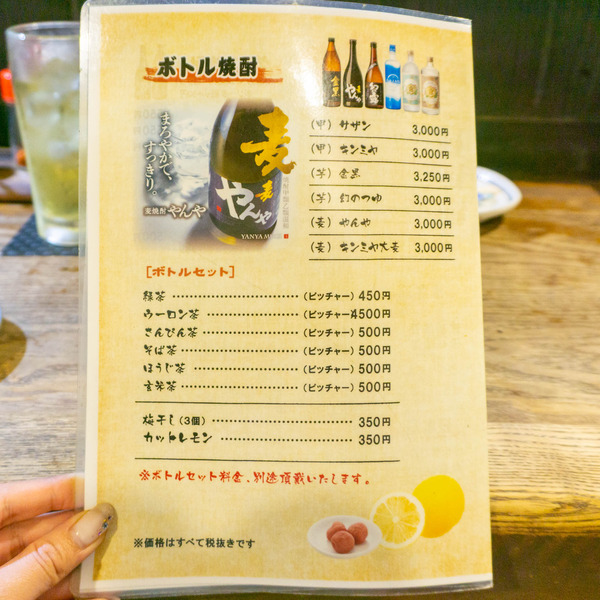 ボトル焼酎
まろやかで、
すっきり。
麦焼酎 やんや
麦
麦
やんや
YANYA
(甲) サザン 3,000円
(甲) キンミヤ 3,000円
(芋) 金黒 3,250円
(芋) 幻のつゆ 3,000円
(麦) やんや 3,000円
(麦) キンミヤ大麦 3,000円
[ボトルセット]
緑茶 (ピッチャー) 450円
ウーロン茶 (ピッチャー) 4500円
さんぴん茶 (ピッチャー) 500円
そば茶 (ピッチャー) 500円
ほうじ茶 (ピッチャー) 500円
玄米茶 (ピッチャー) 500円
梅干し (3個) 350円
カットレモン 350円
※ボトルセット料金、別途頂戴いたします。
※価格はすべて税抜きです